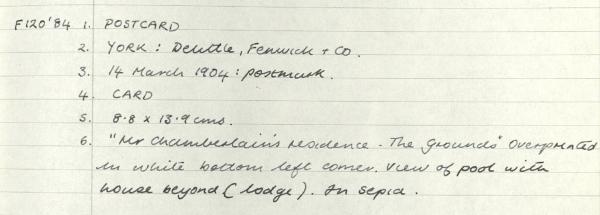 F120'84 1. POSTCARD
2. YORK: Delittle, Fenwick + Co.
3. 14 March 1904: postmark.
4. CARD
5. 8.8 x 13.9 cms.
6. "Mr Chamberlain's residence - The Grounds" overprinted
in white bottom left corner. View of pool with
house beyond (lodge). In sepia.